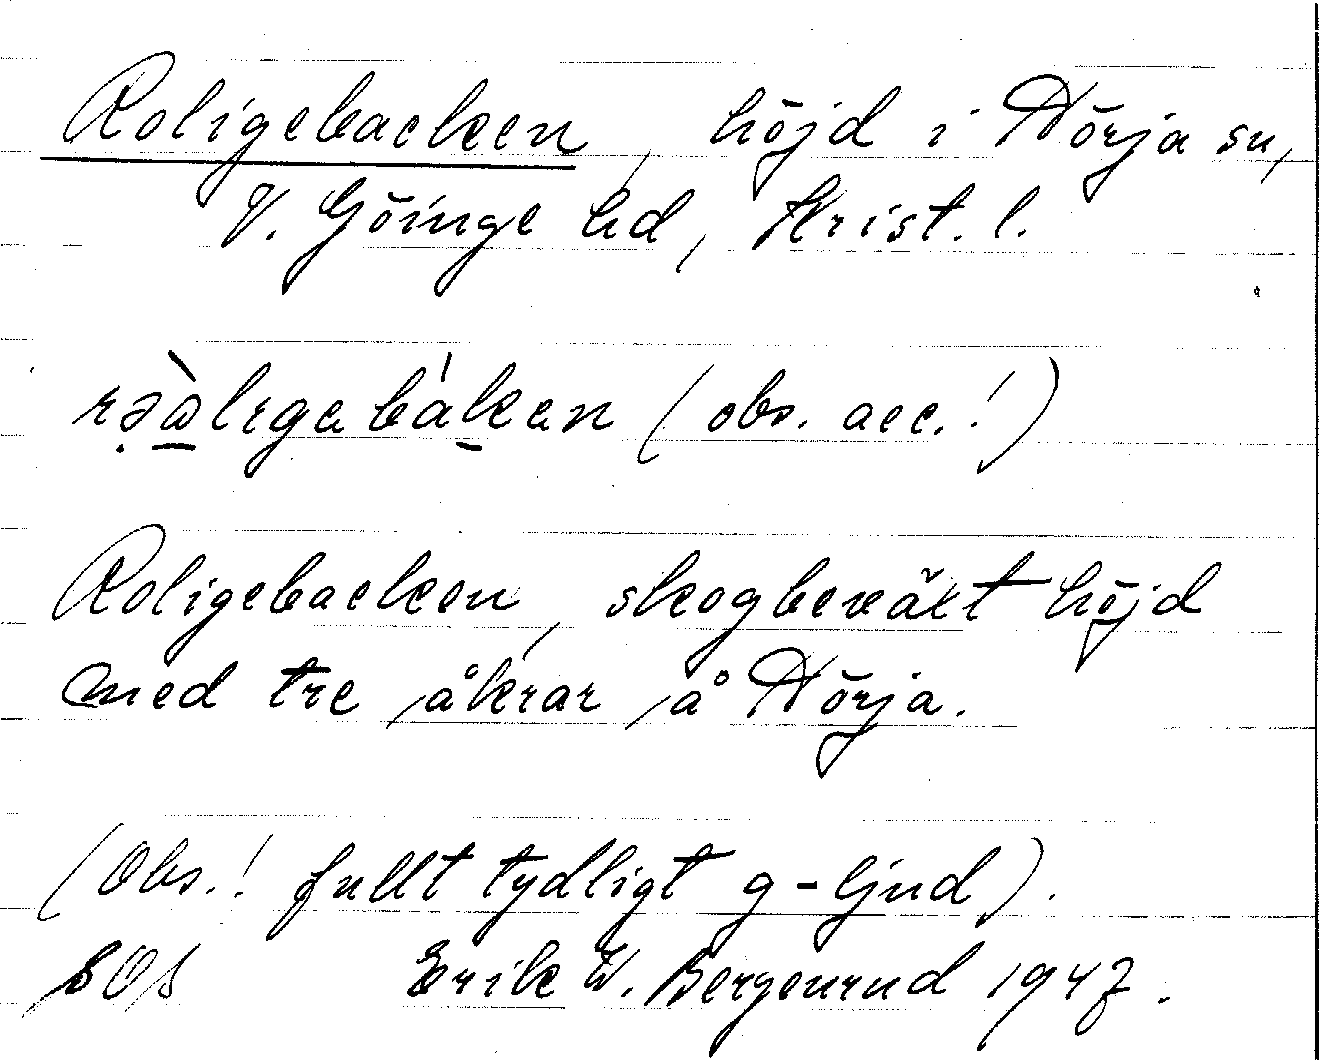 Roligebacken, höjd i Nörja sn,
V. Göinge hd, Krist. l.
(obs. acc.!)
Roligebacken, skogbeväxt höjd
med tre åkrar å Nörja.
(Obs.! fullt tydligt g-ljud).
SOS Erik W. Bergenrud 1947.